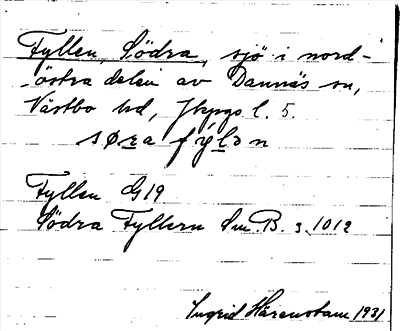 Fyllen, Södra, sjö i nord-
östra delen av Dannäs sn,
Västbo hd, Jkpgs l. 5.
søra fyl̄ən
Fyllen G19
Södra Fyllern Sm. B. 3. 1012
Ingrid Härenstam 1931